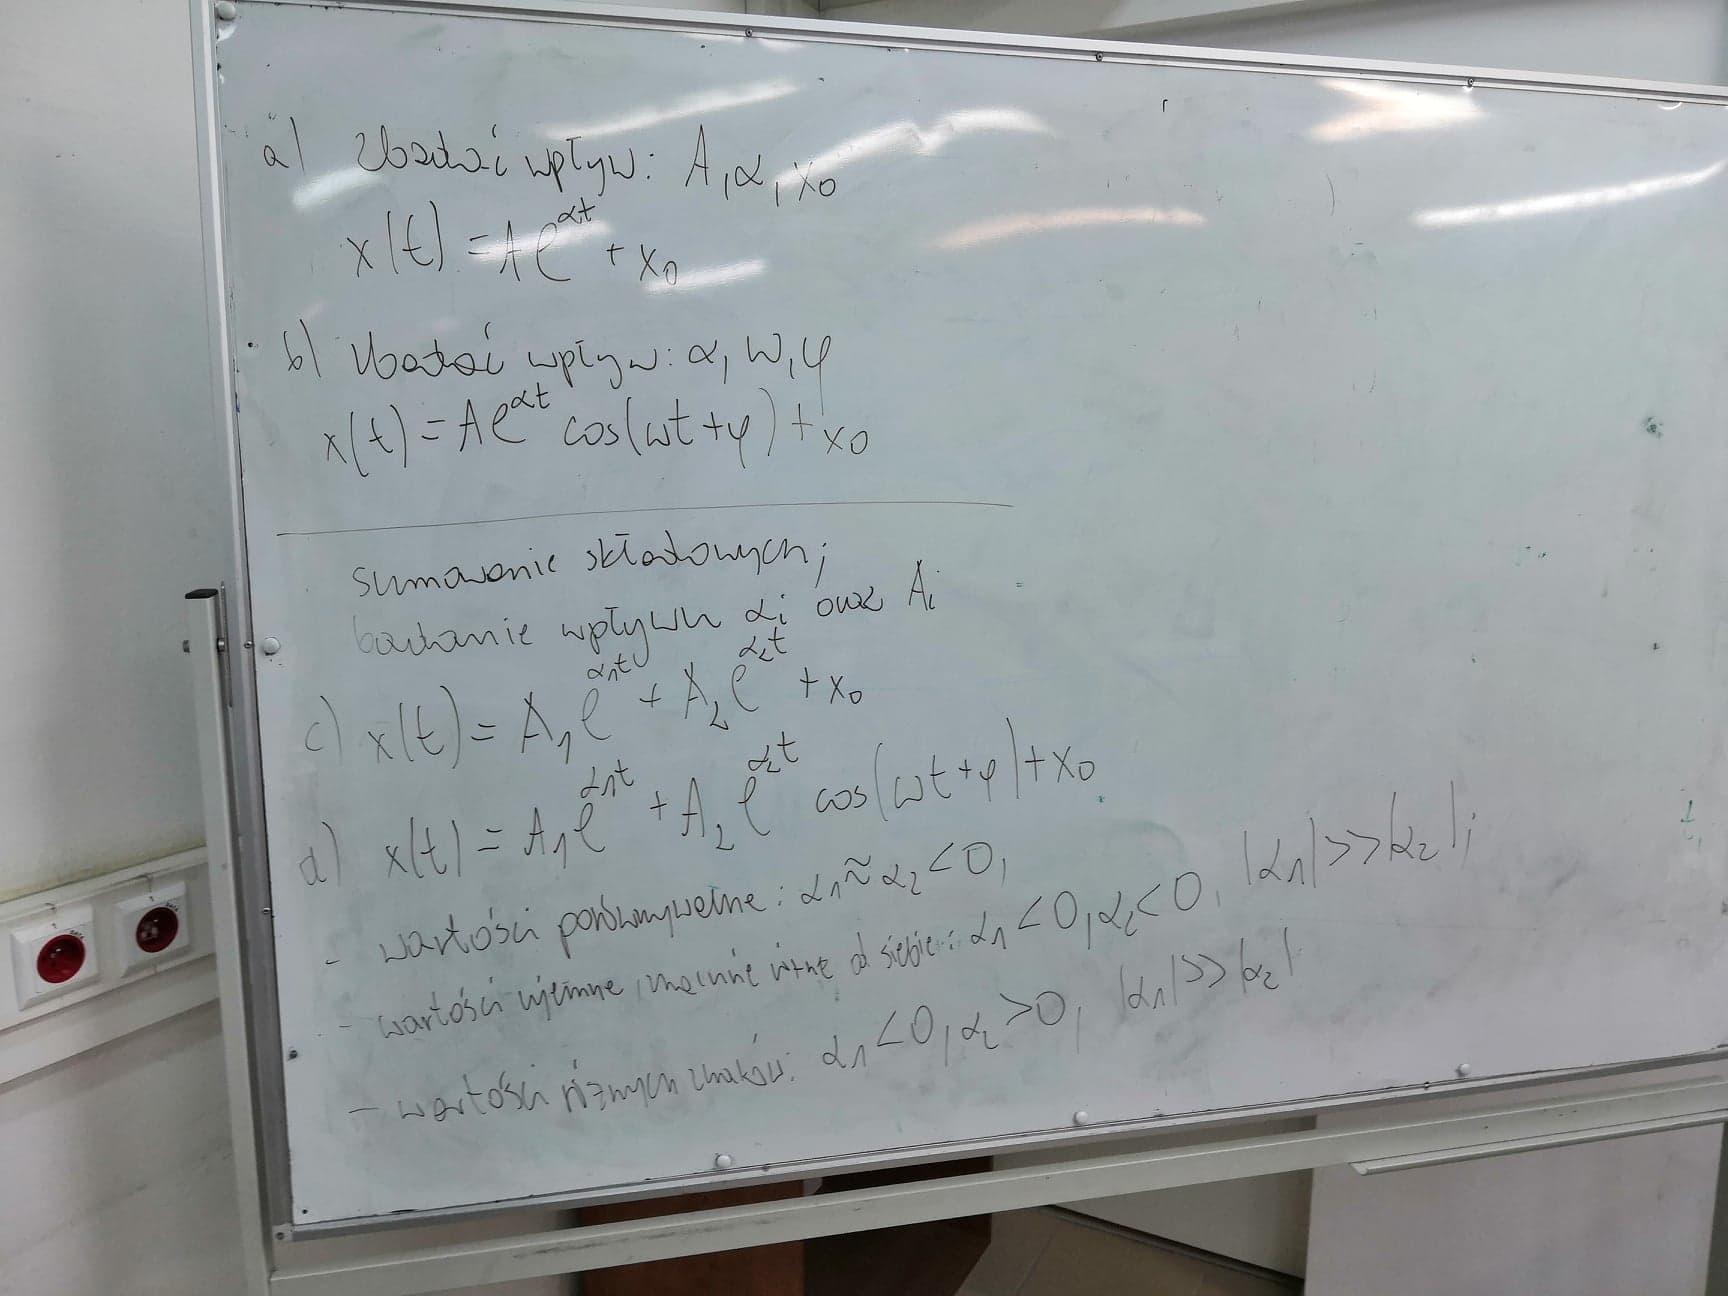 a) Zbadać wpływ: A, α, x₀
x(t) = Ae^{αt} + x₀
b) Zbadać wpływ: α, ω, φ
x(t) = Ae^{αt} cos(ωt+φ) + x₀
sumowanie składowych;
badanie wpływu αᵢ oraz Aᵢ
c) x(t) = A₁e^{α₁t} + A₂e^{α₂t} + x₀
d) x(t) = A₁e^{α₁t} + A₂e^{α₂t} cos(ωt+φ) + x₀
- wartości porównywalne: α₁≈α₂<0,
- wartości ujemne, znacznie różne od siebie: α₁<0, α₂<0, |α₁|>>|α₂|;
- wartości różnych znaków: α₁<0, α₂>0, |α₁|>>|α₂|